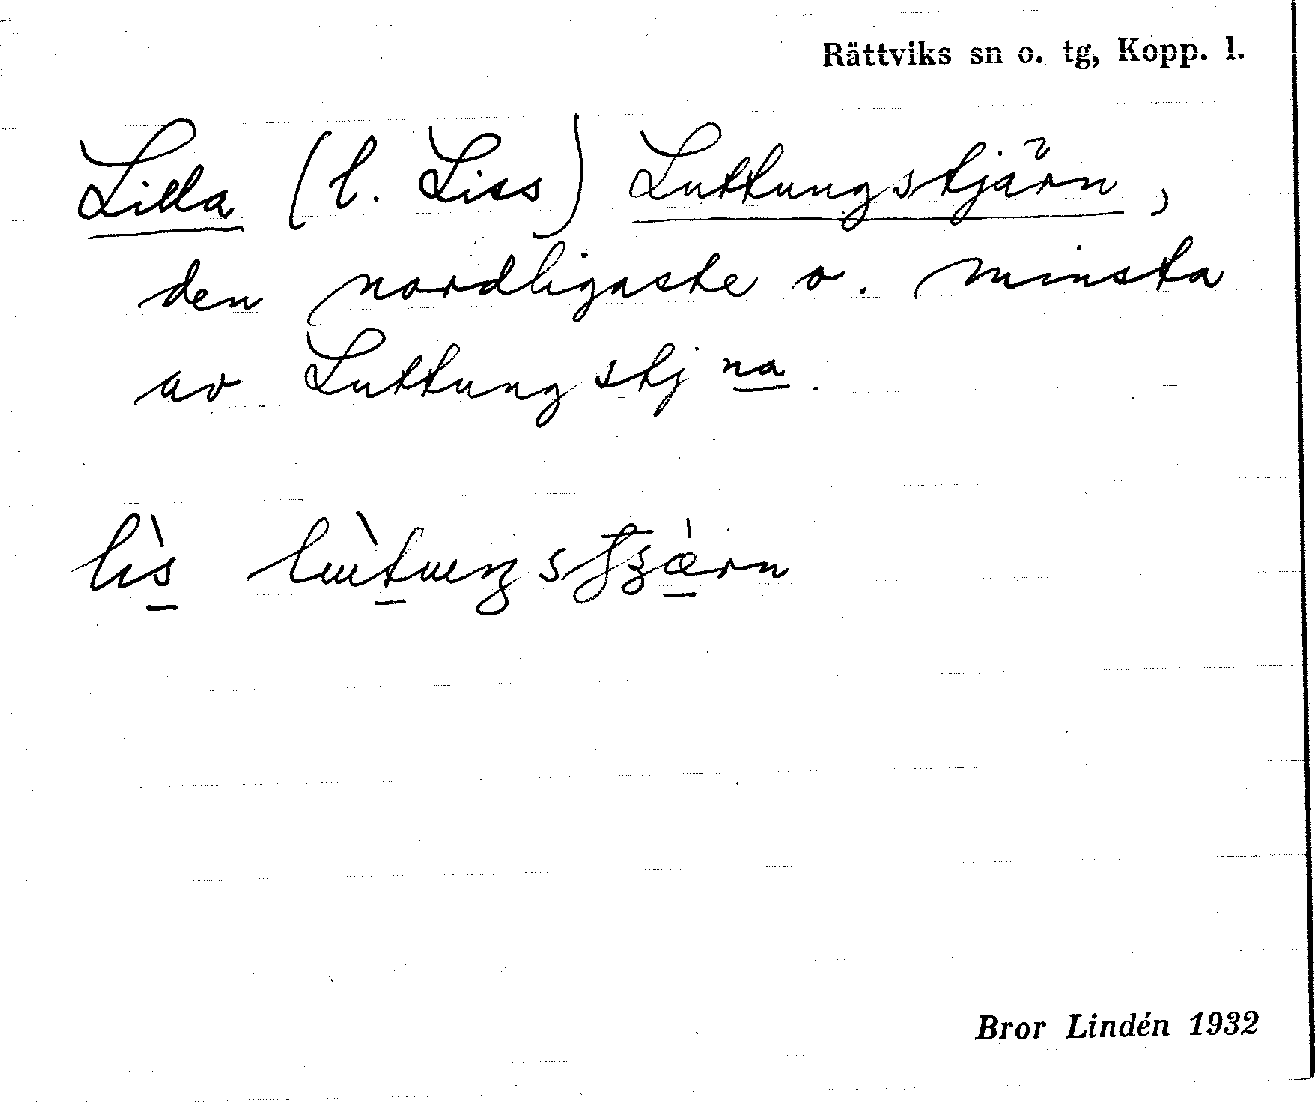 Rättviks sn o. tg, Kopp. l.
Lilla (l. Liss) Luttungstjärn,
den nordligaste o. minsta
av Luttungstjna.
lis
Bror Lindén 1932